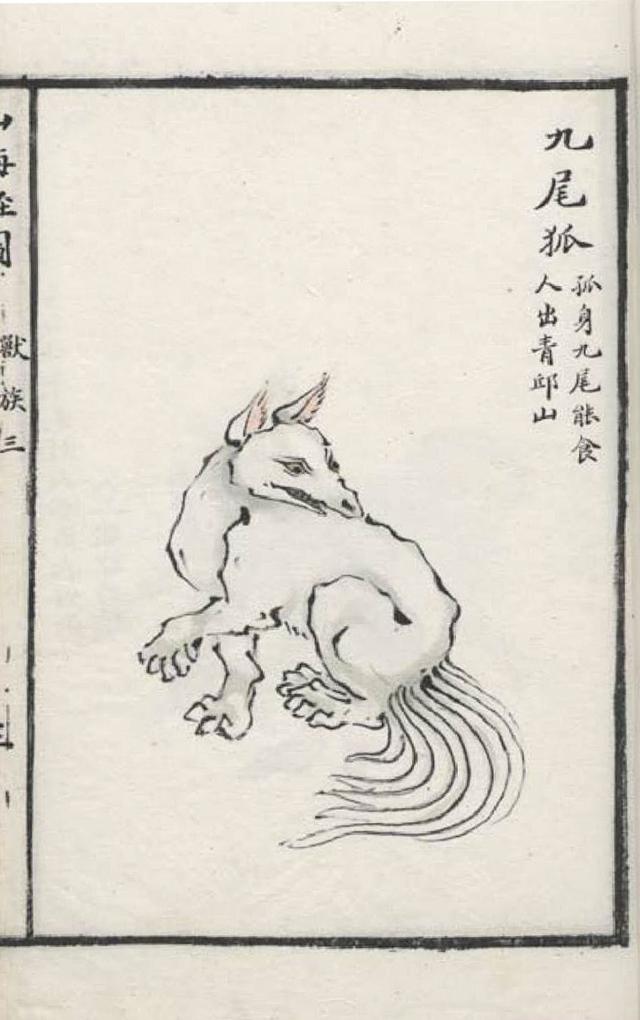 九尾狐
狐身九尾能食
人出青邱山
山海经圖
獸族三